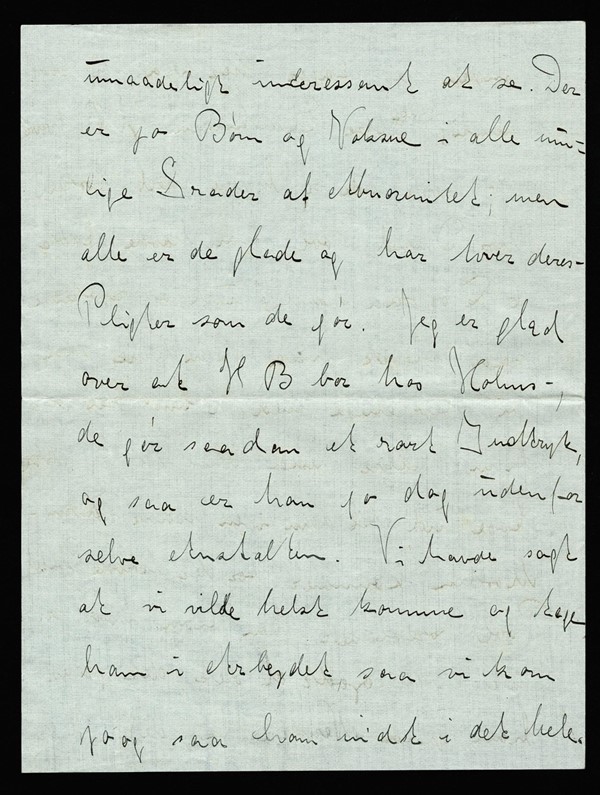 umaadeligt interessant at se. Der
er jo Børn og Voksne i alle mu-
lige Grader af Abnormitet; men
alle er de glade og har hver deres
Pligter som de gør. Jeg er glad
over at H B bor hos Holms -,
de gør saadan et rart Indtryk,
og saa er han jo dog udenfor
selve Anstalten. Vi havde sagt
at vi vilde helst komme og tage
ham i Arbejdet saa vi kom
jo og saa ham midt i det hele.